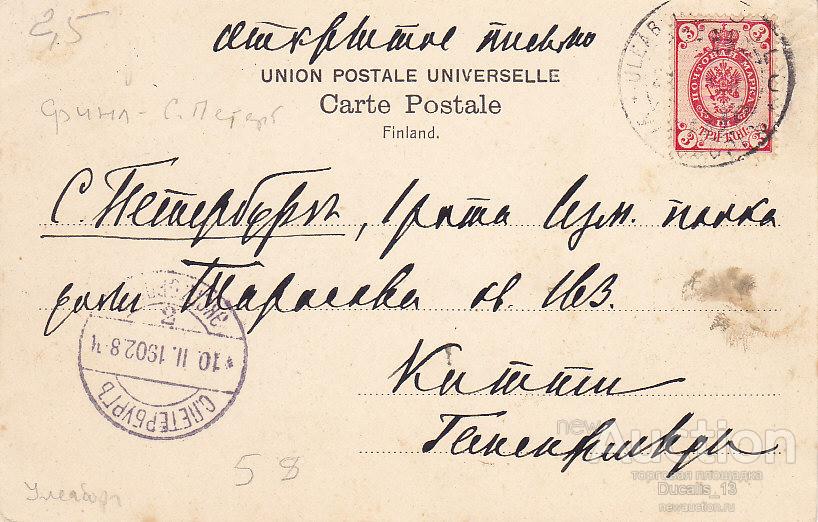 2,5
открытое письмо
UNION POSTALE UNIVERSELLE
Carte Postale
Finland.
Финл - С. Петерб
ULEÅB
3 3
ПОЧТОВАЯ МАРКА
3 ТРИ КОП. 3
С. Петербургъ, 1 рота Изм. полка
домъ Тарасова кв. 163.
10. II. 1902 8 Ч
С.ПЕТЕРБУРГЪ
2
Китти
58
Улеаборг
newAuction
торговая площадка
Ducalis_13
newauction.ru